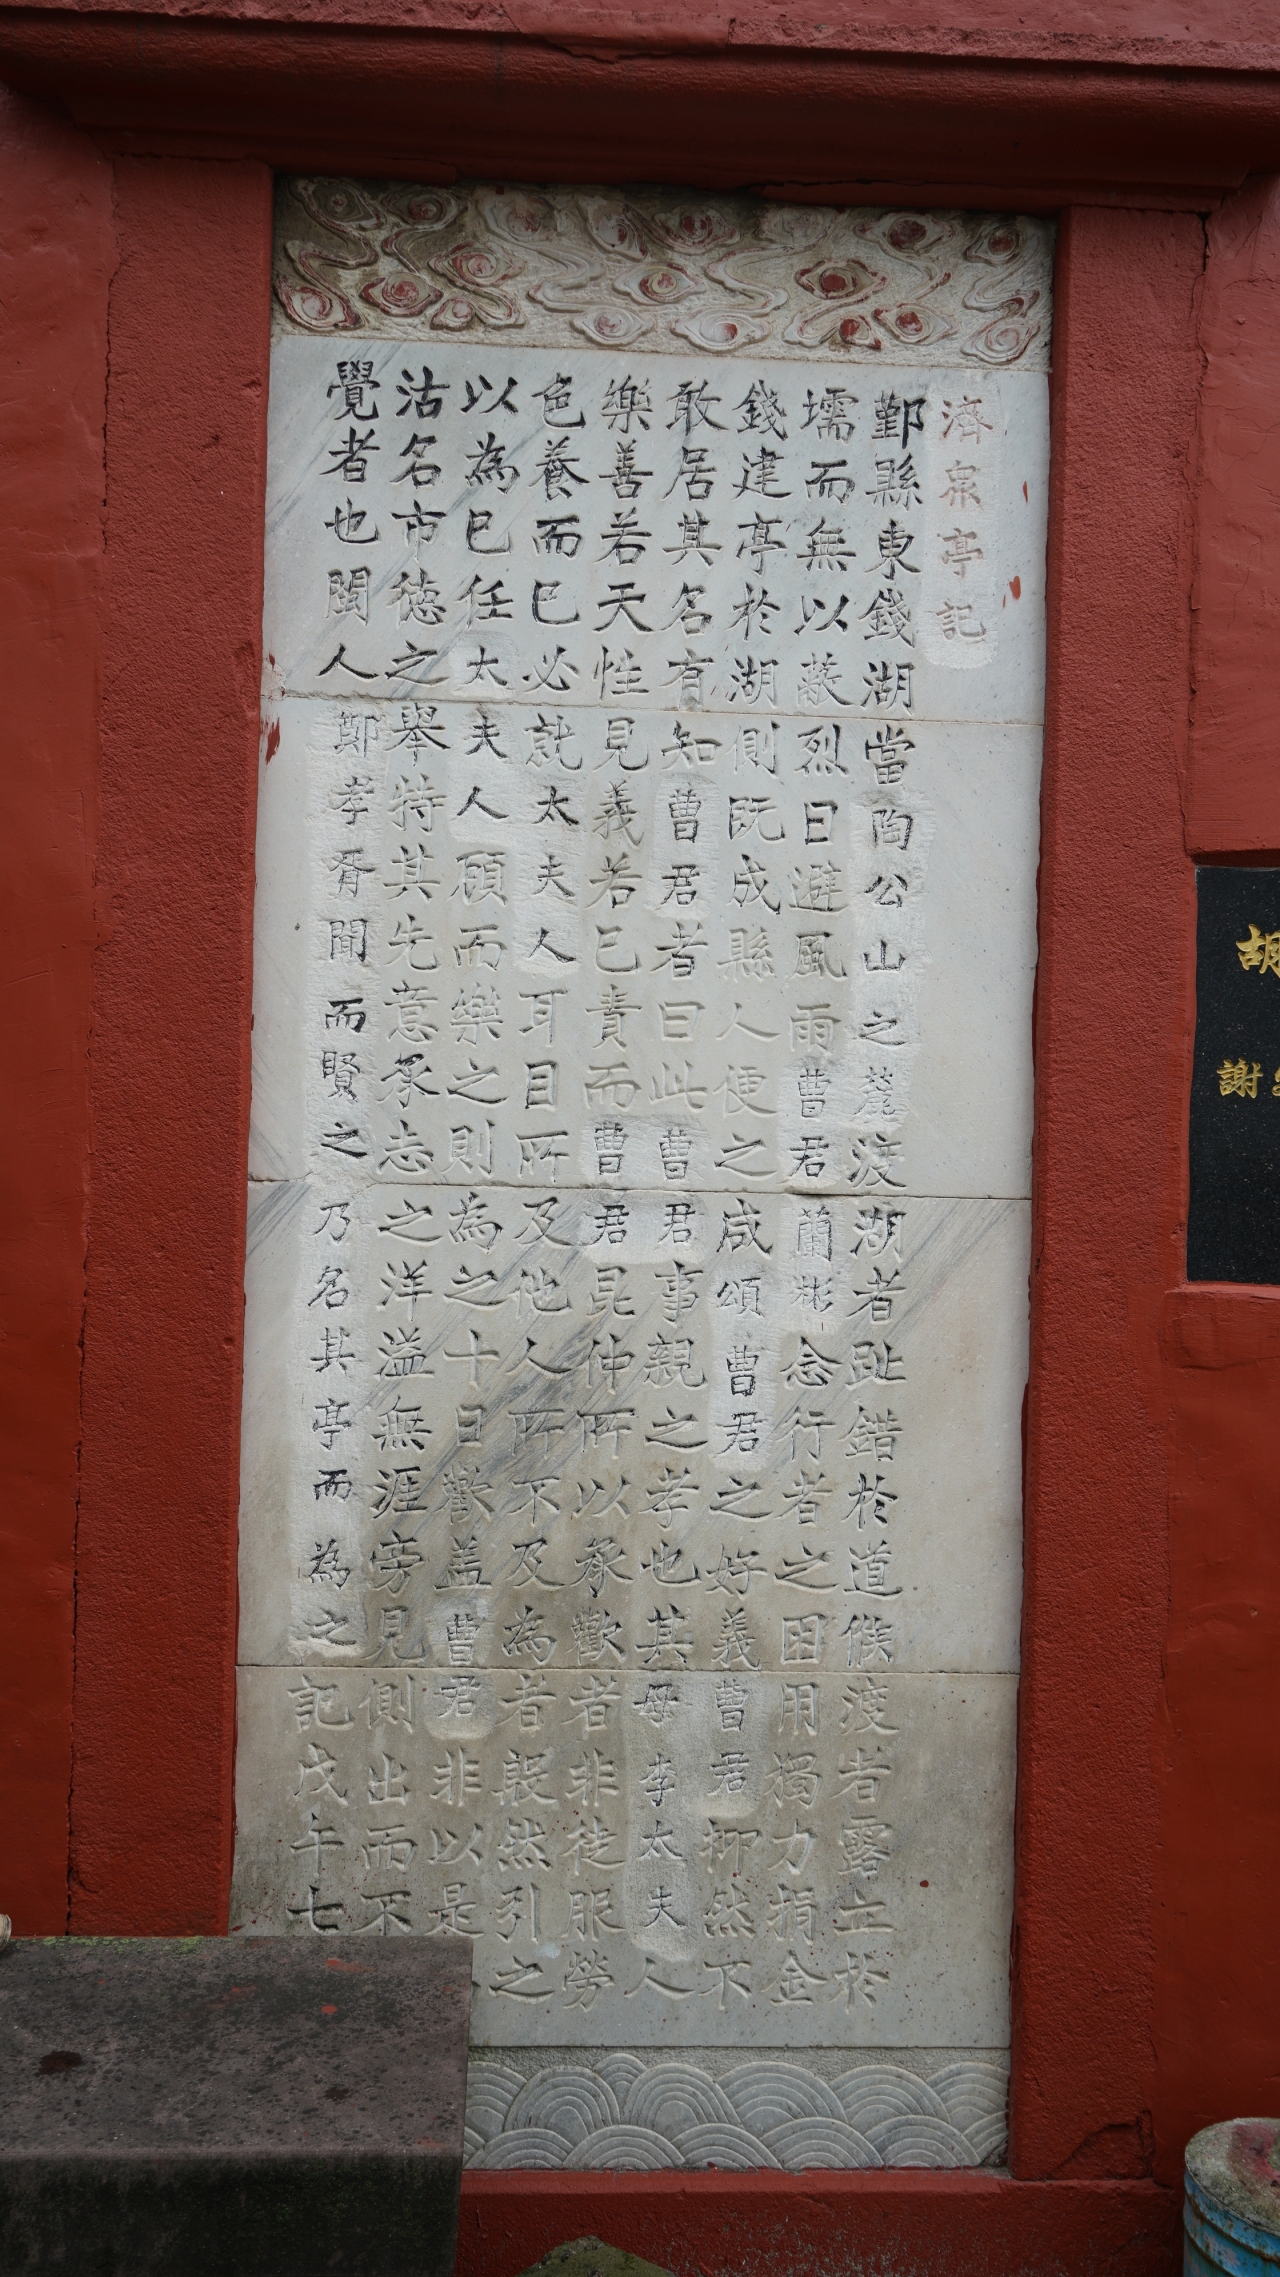 濟泉亭記
鄞縣東錢湖當陶公山之麓渡湖者趾錯於道候渡者露立於
壖而無以蔽烈日避風雨曹君蘭彬念行者之困用獨力捐金
錢建亭於湖側既成縣人便之咸頌曹君之好義曹君抑然不
敢居其名有知曹君者曰此曹君事親之孝也其母李太夫人
樂善若天性見義若己責而曹君昆仲所以承歡者非徒服勞
色養而已必就太夫人耳目所及他人所不及為者毅然引之
以為己任太夫人顧而樂之則為之十日歡盖曹君非以是
沽名市德之舉特其先意承志之洋溢無涯旁見側出而不
覺者也閩人鄭孝胥聞而賢之乃名其亭而為之記戊午七
胡
謝